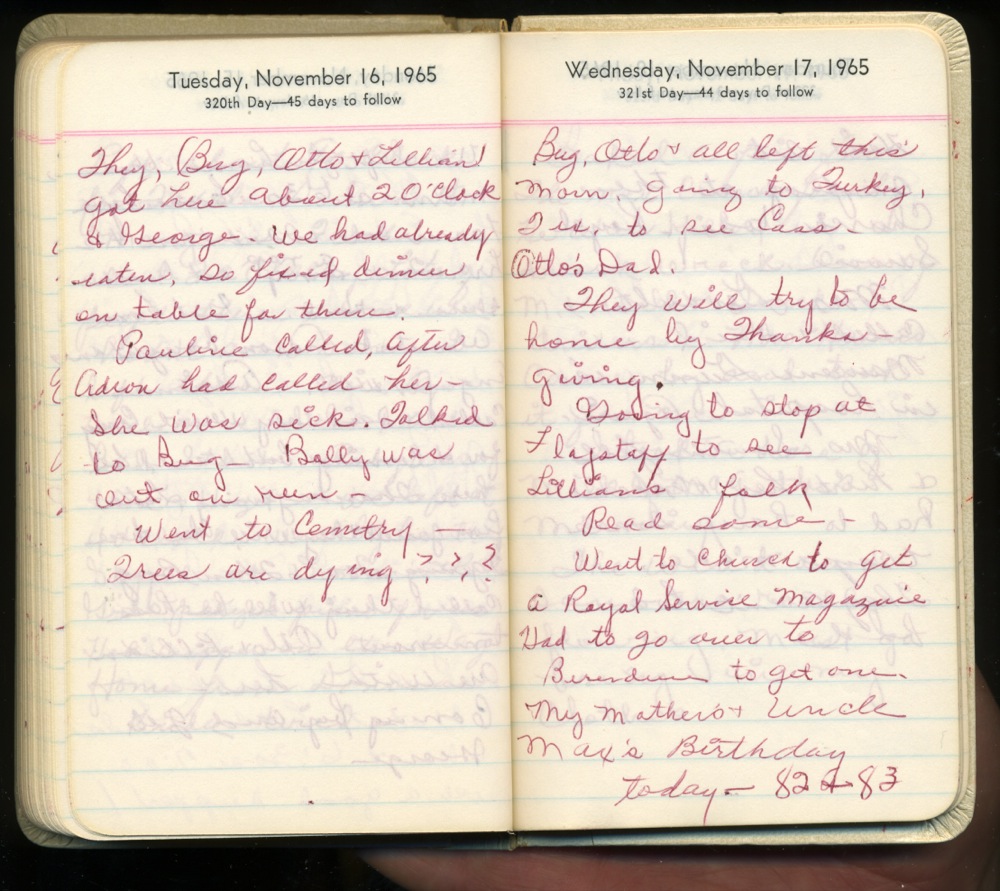 Tuesday, November 16, 1965
320th Day—45 days to follow
They, (Bug, Otto & Lillian)
got here about 2 O'clock
& George. We had already
eaten, so fixed dinner
on table for them.
Pauline called, after
Adron had called her—
She was sick. Talked
to Bug— Bally was
out on run—
Went to Cemetry—
Trees are dying ? ? ?
Wednesday, November 17, 1965
321st Day—44 days to follow
Bug, Otto & all left this
morn. going to Turkey,
Tex. to see Cass—
Otto's Dad.
They will try to be
home by Thanks-
giving.
Going to stop at
Flagstaff to see
Lillian's folk
Read some—
Went to Church to get
a Royal Service Magazine
Had to go over to
to get one.
My Mother's & Uncle
Max's Birthday
today— 82 & 83